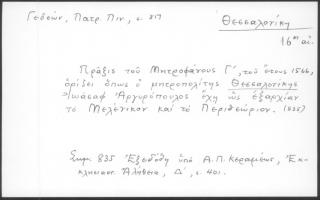 Γεδεών, Πατρ. Πιν., σ. 817
Θεσσαλονίκη
16ος αἰ.
Πρᾶξις τοῦ Μητροφάνους Γ΄, τοῦ ἔτους 1566,
ὁρίζει ὅπως ὁ μητροπολίτης Θεσσαλονίκης
Ἰωάσαφ Ἀργυρόπουλος ἔχῃ ὡς ἐξαρχίαν
τὸ Μελένικον καὶ τὸ Περιθεώριον. (835)
Σημ. 835 Ἐξεδόθη ὑπὸ Α. Π. Κεραμέως, Ἐκ-
κλησιαστ. Ἀλήθεια, Δ΄, σ. 401.